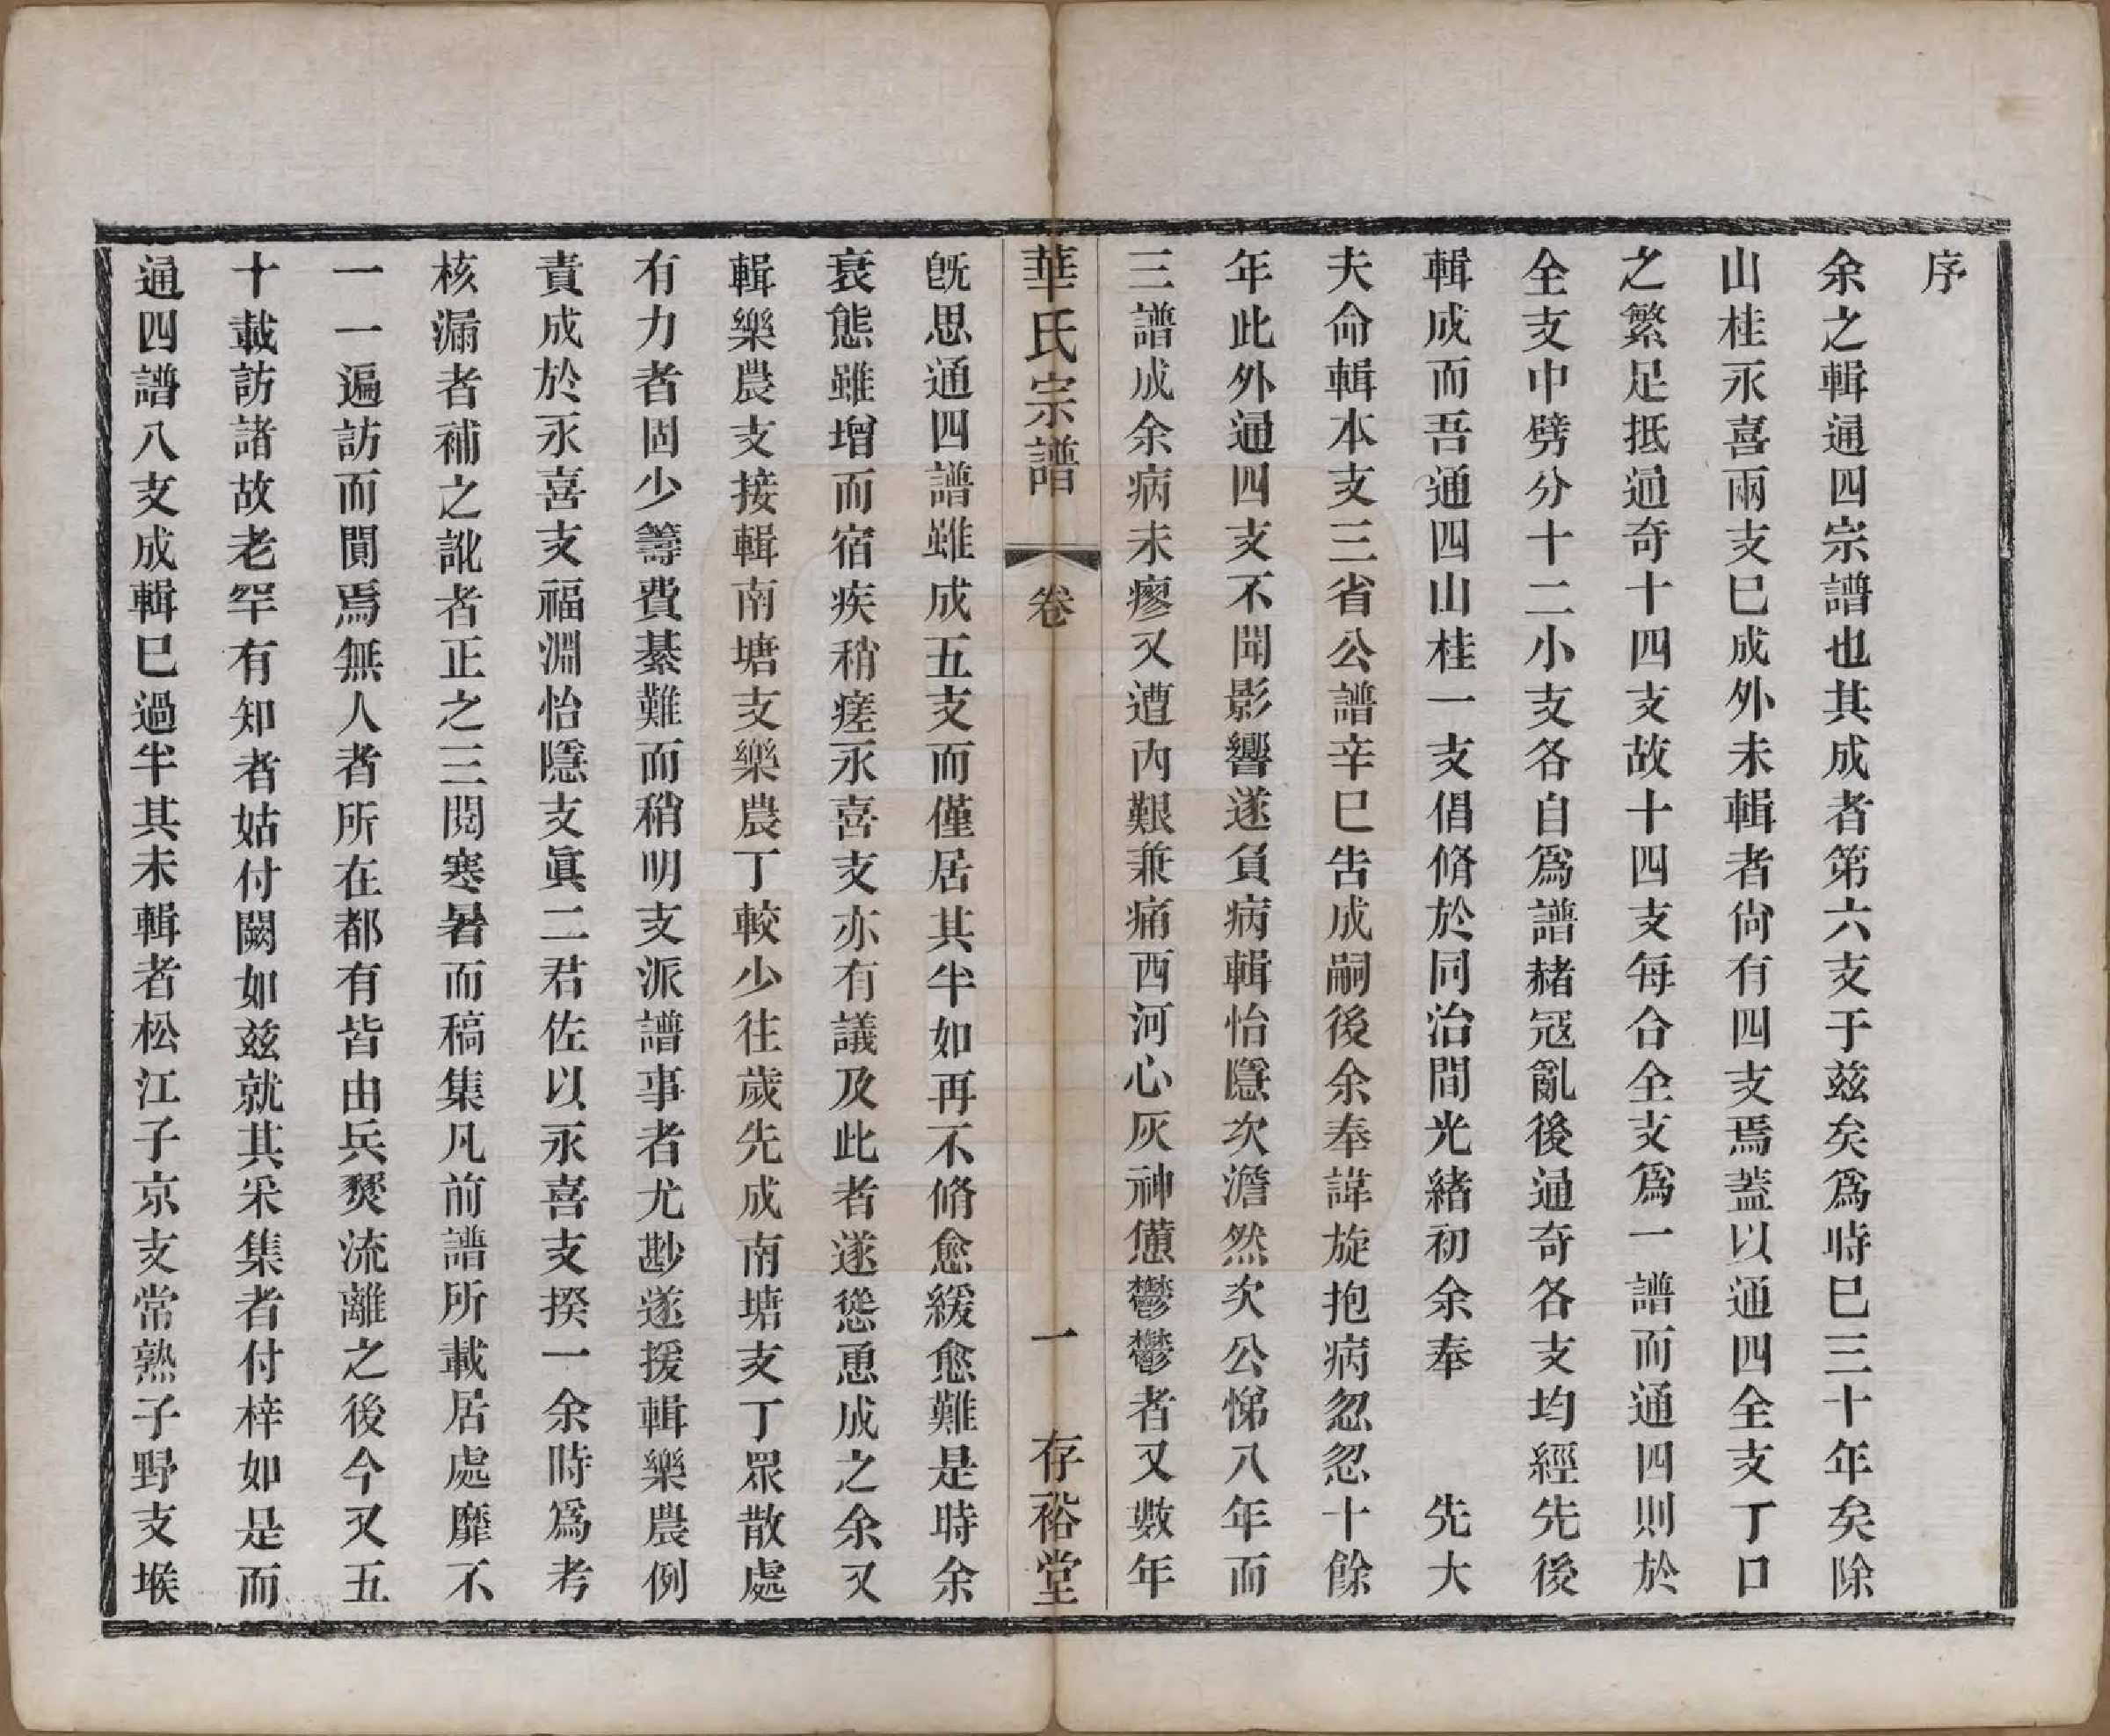 序
余之輯通四宗譜也其成者第六支于茲矣爲時巳三十年矣除
山桂永喜兩支巳成外未輯者尙有四支焉蓋以通四全支丁口
之繁足抵通奇十四支故十四支每合全支爲一譜而通四則於
全支中劈分十二小支各自爲譜赭冦亂後通奇各支均經先後
輯成而吾通四山桂一支倡脩於同治間光緒初余奉　先大
夫命輯本支三省公譜辛巳告成嗣後余奉諱旋抱病忽忽十餘
年此外通四支不聞影響遂負病輯怡隱次澹然次公悌八年而
三譜成余病未瘳又遭內艱兼痛西河心灰神憊鬱鬱者又數年
華氏宗譜　卷　一　存裕堂
旣思通四譜雖成五支而僅居其半如再不脩愈緩愈難是時余
衰態雖增而宿疾稍瘥永喜支亦有議及此者遂慫恿成之余又
輯樂農支接輯南塘支樂農丁較少往歲先成南塘支丁眾散處
有力者固少籌費綦難而稍明支派譜事者尤尠遂援輯樂農例
責成於永喜支福淵怡隱支眞二君佐以永喜支揆一余時爲考
核漏者補之訛者正之三閱寒暑而稿集凡前譜所載居處靡不
一一遍訪而間焉無人者所在都有皆由兵燹流離之後今又五
十載訪諸故老罕有知者姑付闕如茲就其采集者付梓如是而
通四譜八支成輯巳過半其未輯者松江子京支常熟子野支堠